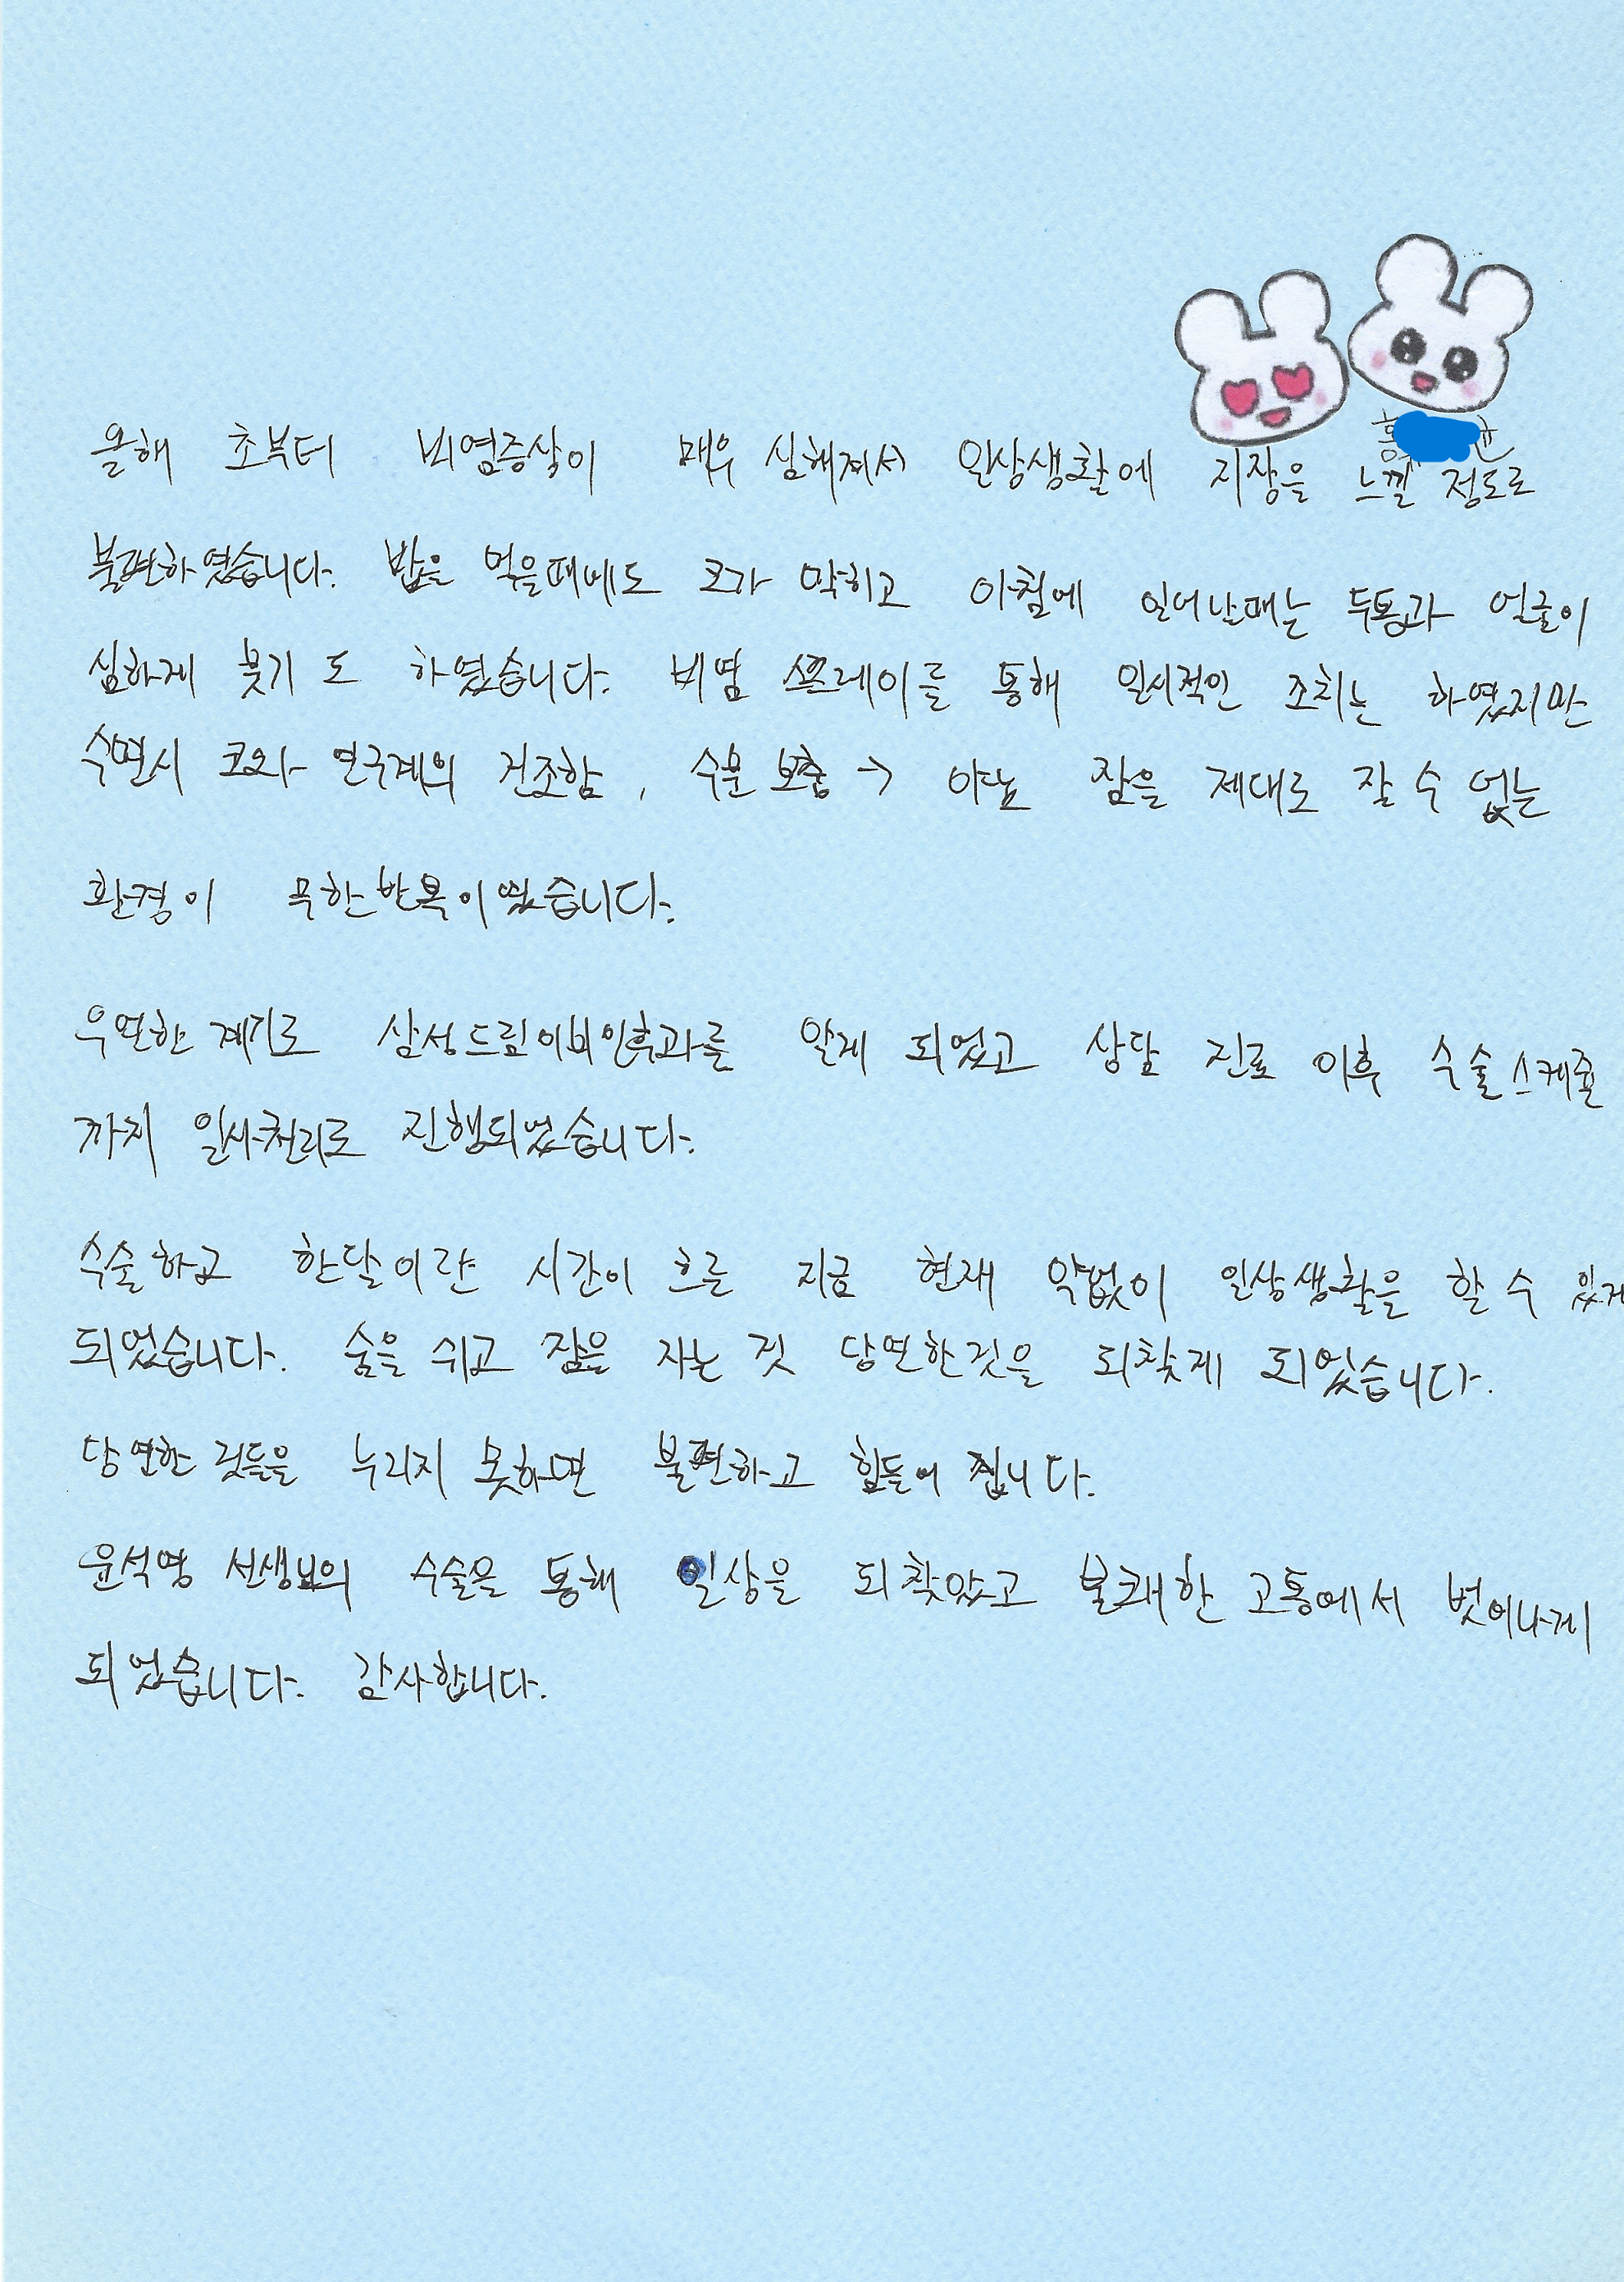 올해 초부터 비염증상이 매우 심해져서 일상생활에 지장을 느낄 정도로
불편하였습니다. 밥을 먹을때에도 코가 막히고 아침에 일어날때는 두통과 얼굴이
심하게 붓기도 하였습니다. 비염 스프레이를 통해 일시적인 조치는 하였지만
수면시 코와 연구개의 건조함, 수분 보충 → 야뇨 잠을 제대로 잘 수 없는
환경이 무한반복이였습니다.
우연한 계기로 삼성드림이비인후과를 알게 되었고 상담 진료 이후 수술스케줄
까지 일사천리로 진행되었습니다.
수술하고 한달이란 시간이 흐른 지금 현재 약없이 일상생활을 할 수 있게
되었습니다. 숨을 쉬고 잠을 자는 것 당연한것을 되찾게 되었습니다.
당연한 것들을 누리지 못하면 불편하고 힘들어 집니다.
윤석영 선생님의 수술을 통해 일상을 되찾았고 불쾌한 고통에서 벗어나게
되었습니다. 감사합니다.